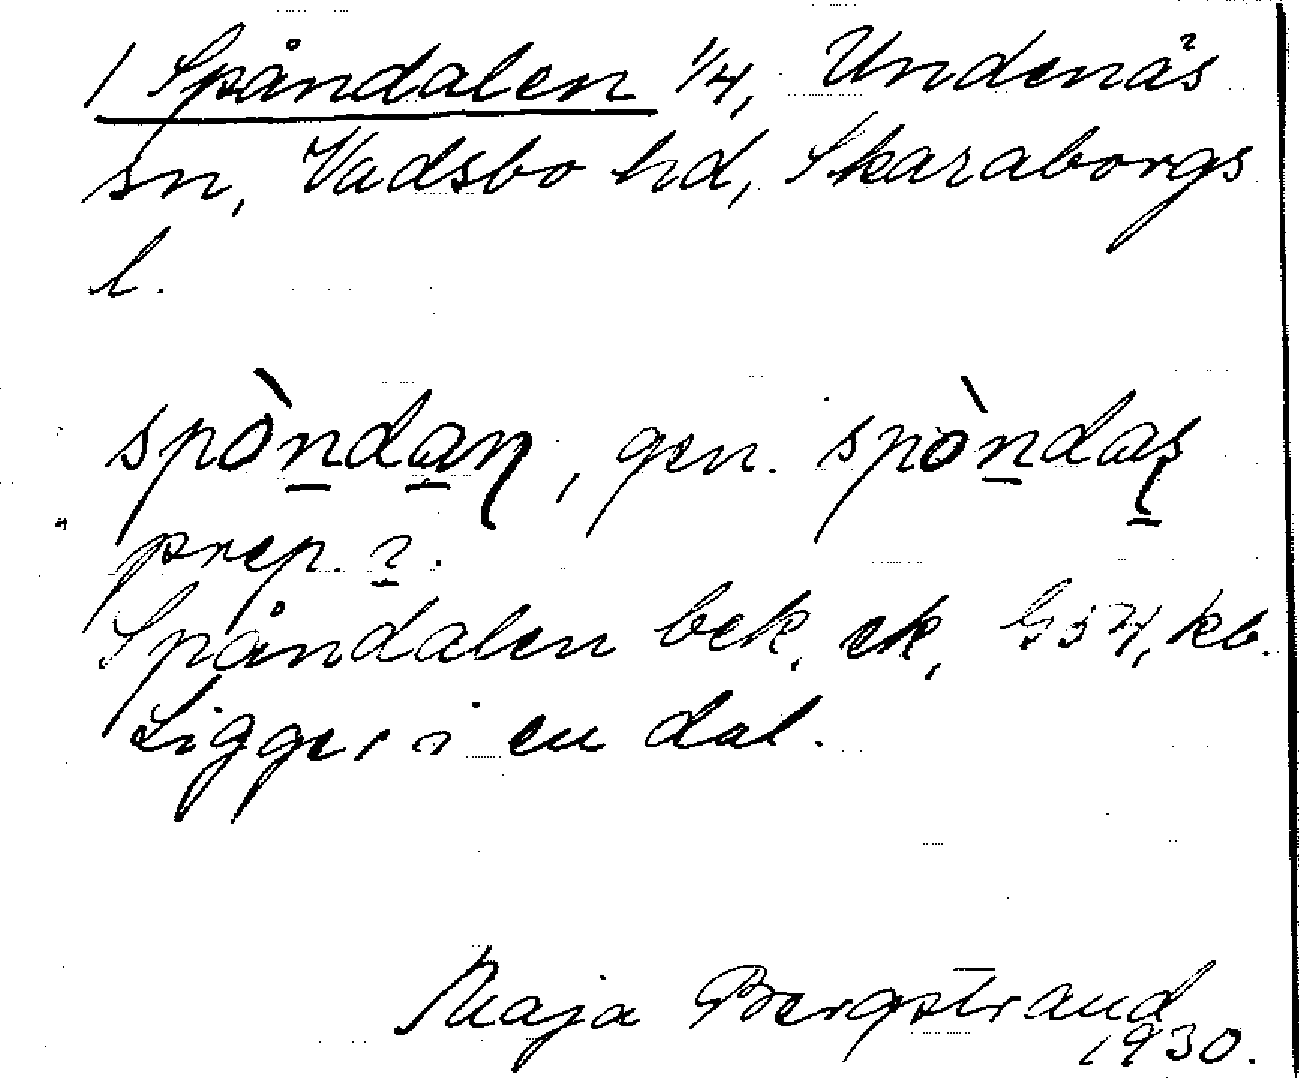 1 Spåndalen 1/4, Undenäs
sn, Vadsbo hd, Skaraborgs
l.
spòndaη, gen. spòndas
prep. i.
Spåndalen bek. ek. G 54, kb.
Ligger i en dal.
Maja Bergstrand
1930.